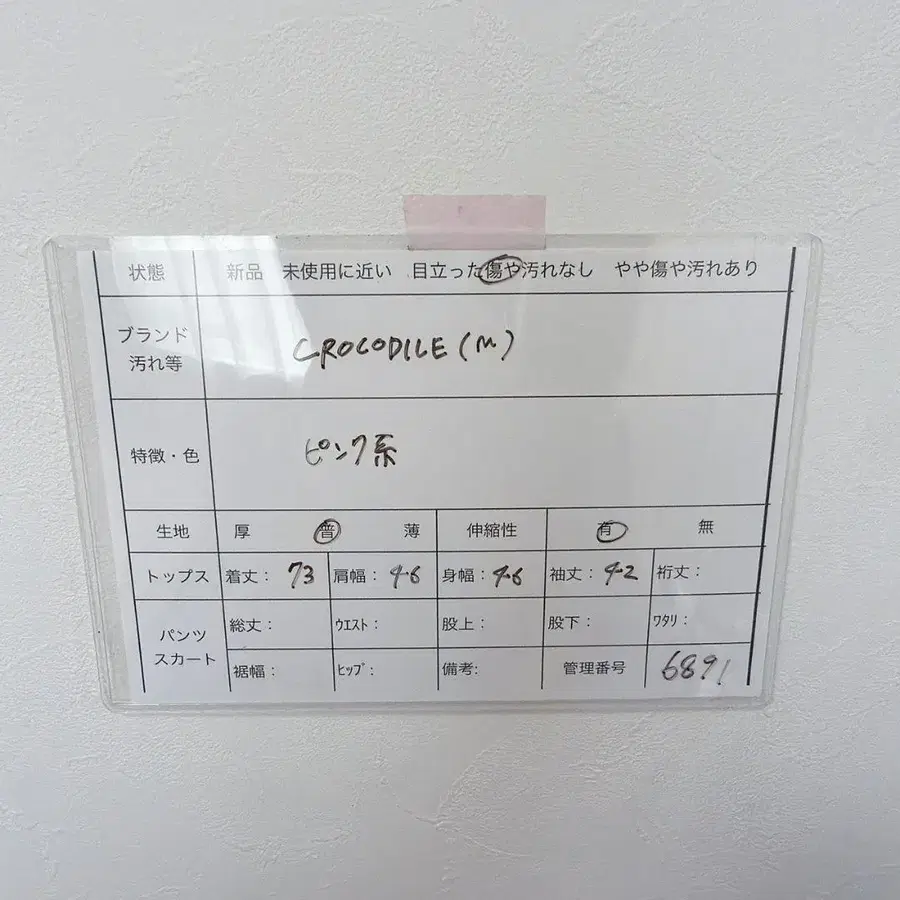 状態 新品 未使用に近い 目立った傷や汚れなし やや傷や汚れあり
ブランド
汚れ等
CROCODILE (M)
特徴・色 ピンク系
生地 厚 普 薄 伸縮性 有 無
トップス 着丈: 73 肩幅: 46 身幅: 46 袖丈: 42 裄丈:
パンツ
スカート
総丈: ウエスト: 股上: 股下: ワタリ:
裾幅: ヒップ: 備考: 管理番号 6891